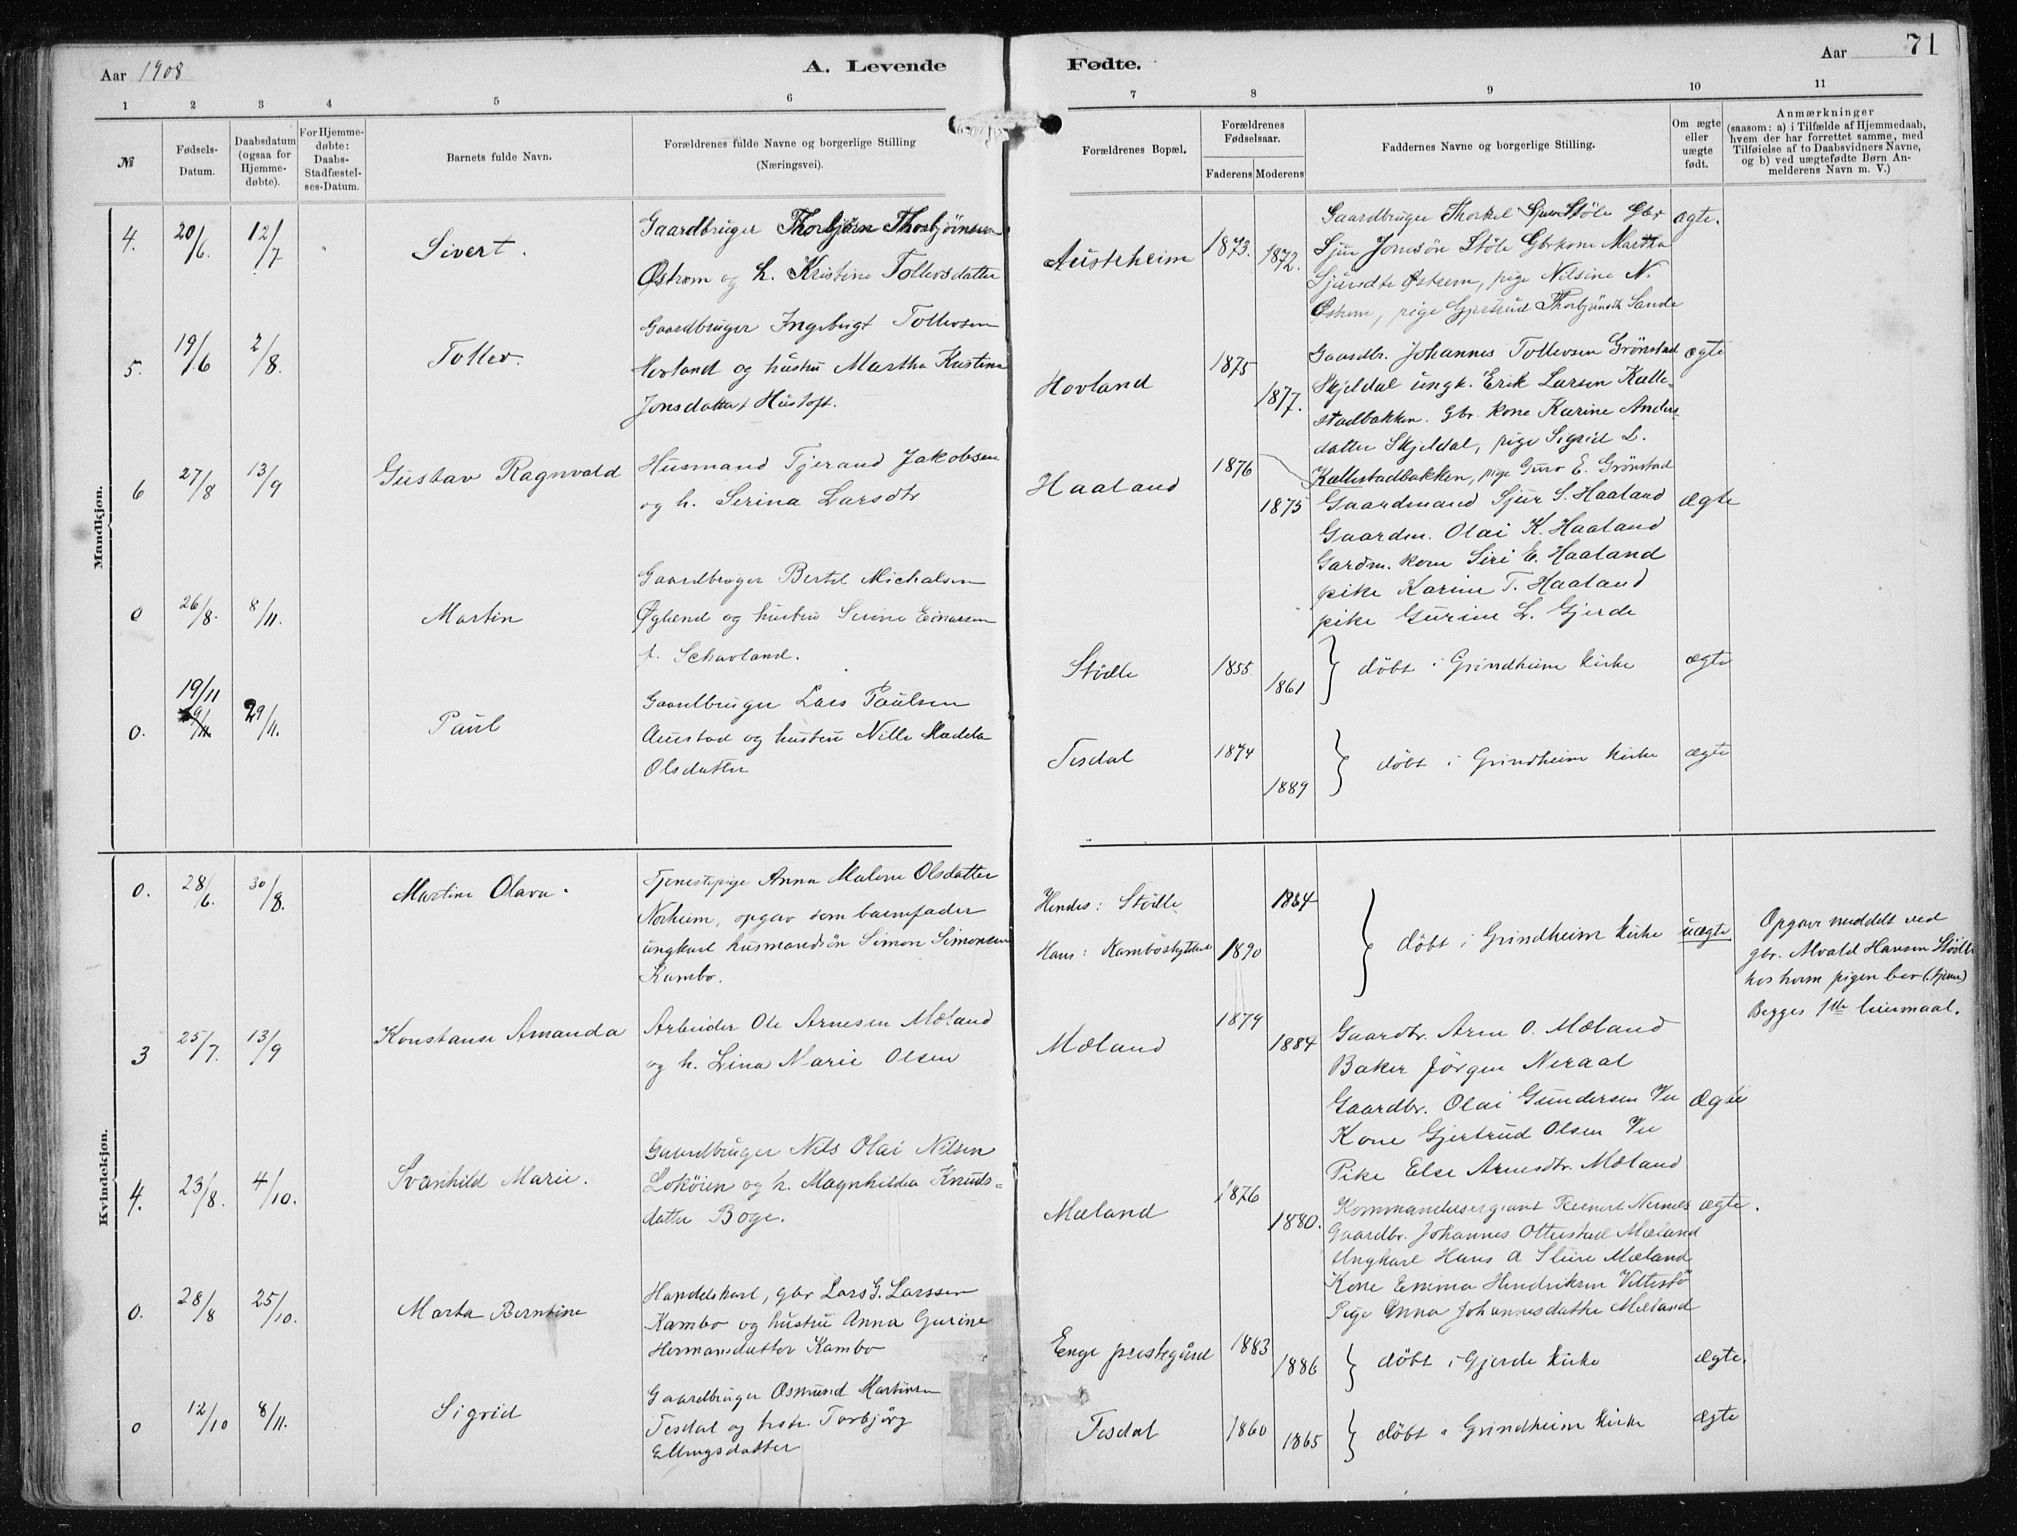 71
Aar 1908
A. Levende
Fødte.
Aar
1 2 3 4 5 6
7 8 9 10 11
№
Fødsels-
Datum.
Daabsdatum
(ogsaa for
Hjemme-
døbte).
For Hjemme-
døbte:
Daabs-
Stadfæstel-
ses-Datum.
Barnets fulde Navn.
Forældrenes fulde Navne og borgerlige Stilling
(Næringsvei).
Forældrenes Bopæl.
Forældrenes
Fødselsaar.
Faderens Moderens
Faddernes Navne og borgerlige Stilling.
Om ægte
eller
uægte
født.
Anmærkninger
(saasom: a) i Tilfælde af Hjemmedaab,
hvem der har forrettet samme, med
Tilføielse af to Daabsvidners Navne,
og b) ved uægtefødte Børn An-
melderens Navn m. V.)
Mandkjøn.
4. 20/6. 12/7 " Sivert.
Gaardbruger Thorbjørn Thorbjørnsen
Østrem og h. Kristine Tollevsdatter
Austrheim 1873. 1872.
Gaardbruger Thorkel Sjursen Støle Gbr
Sjur Jonesøn Støle Gbrkone Martha
Sjursdtr Østrem, pige Nilsine N.
Østrem, pige Gjertrud Thorbjørnsdtr Sande
ægte.
5. 19/6 2/8. Tollev.
Gaardbruger Ingebrigt Tollevsen
Hovland og hustru Martha Kristine
Jonsdatter f Hustoft.
Hovland 1875 1877.
Gaardbr. Johannes Tollevsen Grønstad
Skjeldal ungk. Erik Larsen Kalle-
stadbakken. Gbr. kone Karine Anders-
datter Skjeldal, pige Sigrid L.
Kallestadbakken, pige Guro E. Grønstad
ægte
6 27/8 13/9 Gustav Ragnvald
Husmand Tjerand Jakobsen
og h. Serina Larsdtr
Haaland 1876 1875
Gaardmand Sjur S. Haaland
Gaardm. Olai K. Haaland
Gardm. kone Siri E. Haaland
pike Karine T. Haaland
pike Gurine L. Gjerde
ægte
0 26/8. 8/11. Martin
Gaardbruger Bertel Michalsen
Øglænd og hustru Serine Einarsen
f. Schavland.
Stødle 1855 1861
døbt i Grindheim kirke
ægte
0. 19/11 29/11. Paul
Gaardbruger Lars Paulsen
Austad og hustru Nille Madela
Olsdatter
Tesdal 1874 1889
døbt i Grindheim kirke
ægte
Kvindekjøn.
0. 28/6. 30/8. Martine Olava.
Tjenestepige Anna Malene Olsdatter
Norheim, opgav som barnefader
ungkarl husmandsøn Simon Simonsen
Kambo.
Hendes: Stødle 1884
Hans: 1890
døbt i Grindheim kirke
uægte
Opgave meddelt ved
gbr. Alvald Hansen Stødle
hos hvem pigen bor (tjene)
Begges 1ste leiermaal.
3 25/7. 13/9 Konstanse Amanda
Arbeider Ole Arnesen Mæland
og h. Lina Marie Olsen
Mæland 1879 1884
Gaardbr. Arne O. Mæland
Baker Jörgen Neraal
Gaardbr. Olai Gundersen Vu
Kone Gjertrud Olsen Vu
Pike Else Arnesdtr. Mæland
Ægte
4. 23/8. 4/10. Svanhild Marie.
Gaardbruger Nils Olai Nilsen
Lokøien og h. Magnhilda Knuds-
datter Boge.
Mæland 1876 1880.
Kommandersergeant Reenert Nernes
Gaardbr. Johannes Ottestad Mæland
Ungkarl Hans A Sleire Mæland
Kone Emma Hendriksen Vittestø
Pige Anna Johannesdatter Mæland
ægte.
0. 28/8 25/10. Marta Berntine
Handelskarl, gbr Lars G. Larssen
Kambo og hustru Anna Gurine
Hermansdatter Kambo
Enge prestegård 1883 1886
døbt i Gjerde kirke
ægte.
0 12/10 8/11. Sigrid
Gaardbruger Osmund Martinsen
Tesdal og hstr. Torbjørg
Ellingsdatter
Tesdal 1860 1865
døbt i Grindheim kirke
ægte